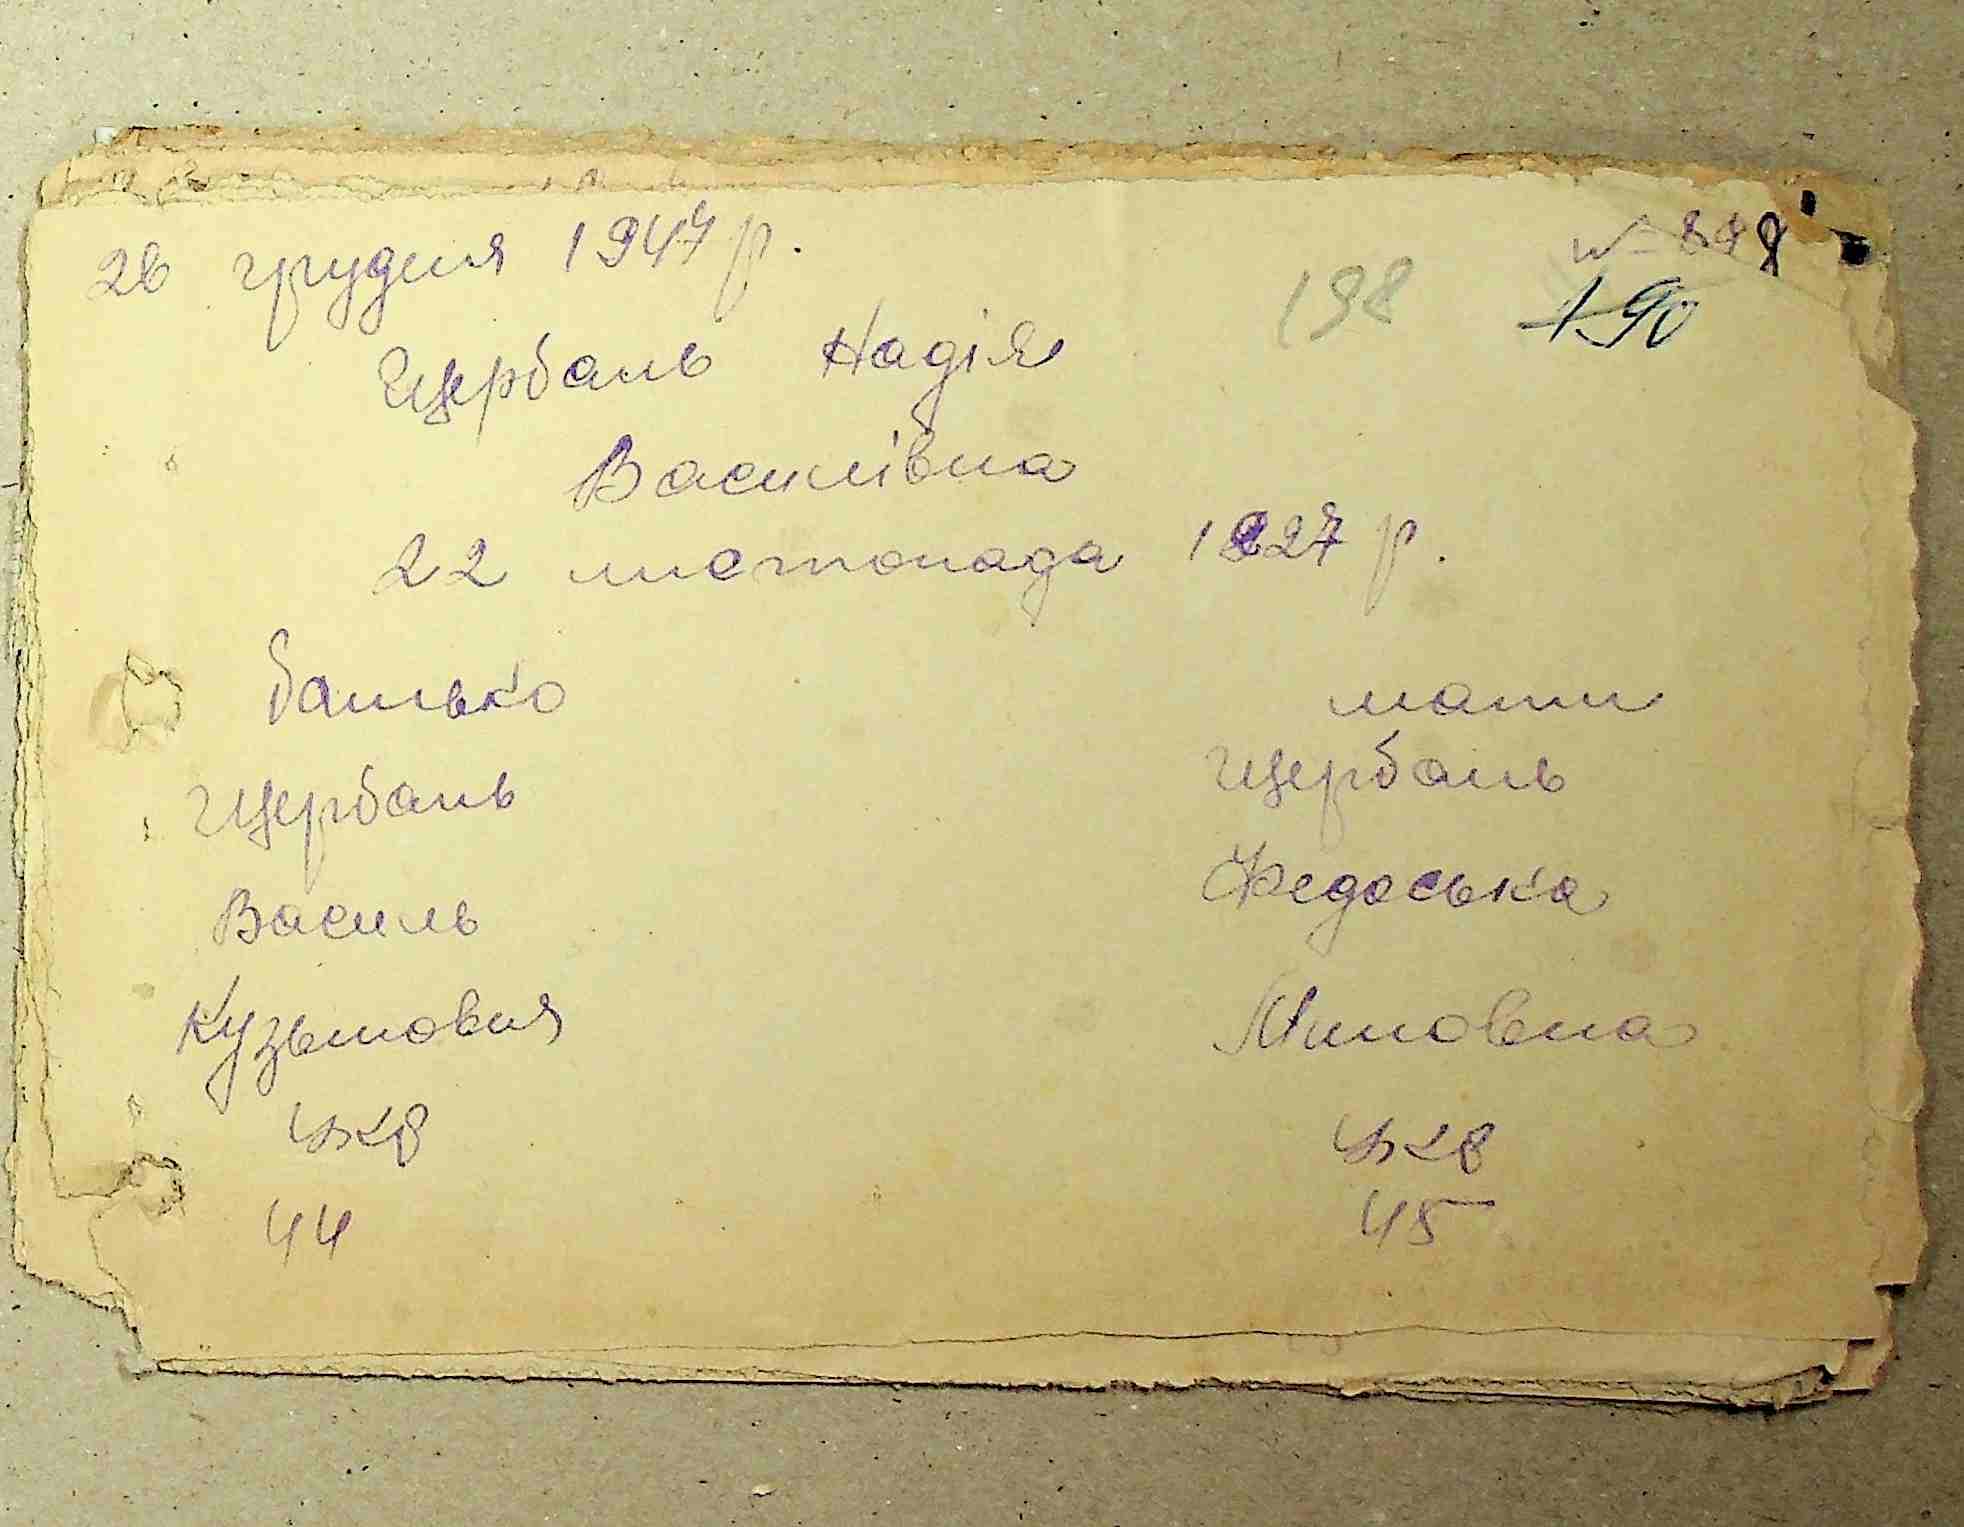 26 грудня 1947 р.
№ 898
198
190
Щербань Надія
Василівна
22 листопада 1927 р.
батько
мати
Щербань
Щербань
Василь
Федоська
Кузьмовия
Миновна
укв
укв
44
45